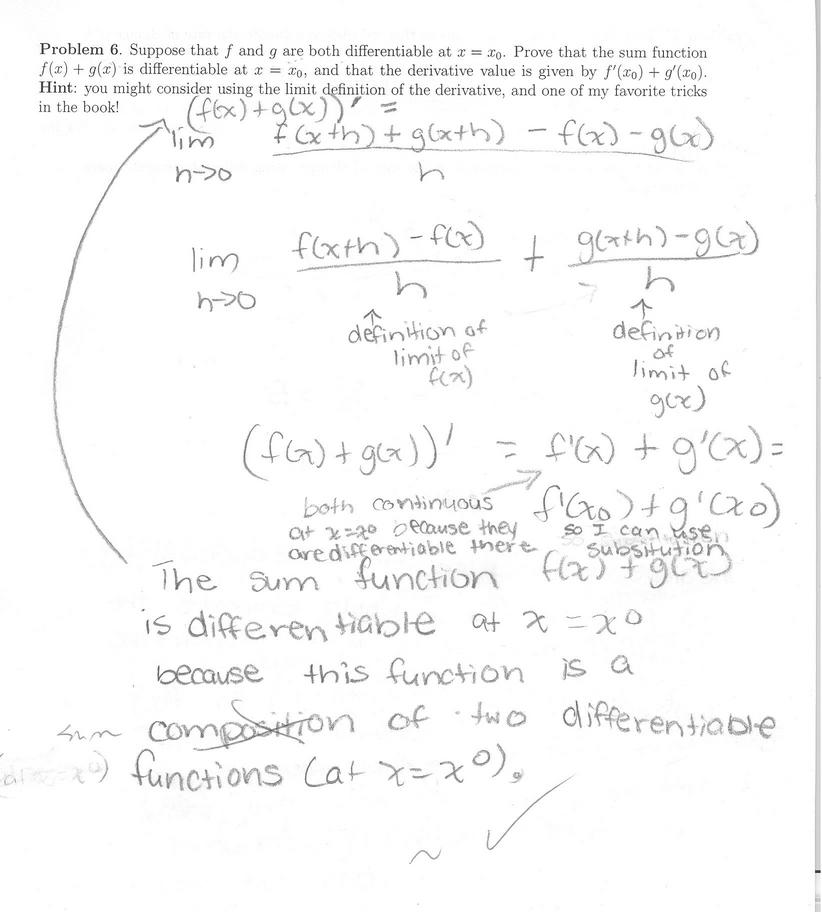 Problem 6. Suppose that f and g are both differentiable at x = x₀. Prove that the sum function
f(x) + g(x) is differentiable at x = x₀, and that the derivative value is given by f′(x₀) + g′(x₀).
Hint: you might consider using the limit definition of the derivative, and one of my favorite tricks
in the book!
(f(x)+g(x))′ =
lim h->0 f(x+h) + g(x+h) - f(x) - g(x) / h
lim h->0 f(x+h) - f(x) / h + g(x+h) - g(x) / h
↑ ↑
definition of limit of f(x)
definition of limit of g(x)
(f(x) + g(x))′ = f′(x) + g′(x) =
f′(x₀) + g′(x₀)
both continuous
at x=x⁰ because they
are differentiable there
so I can use
subsitution
The sum function f(x) + g(x)
is differentiable at x = x⁰
because this function is a
sum composition of two differentiable
functions (at x = x⁰).
~ ✓